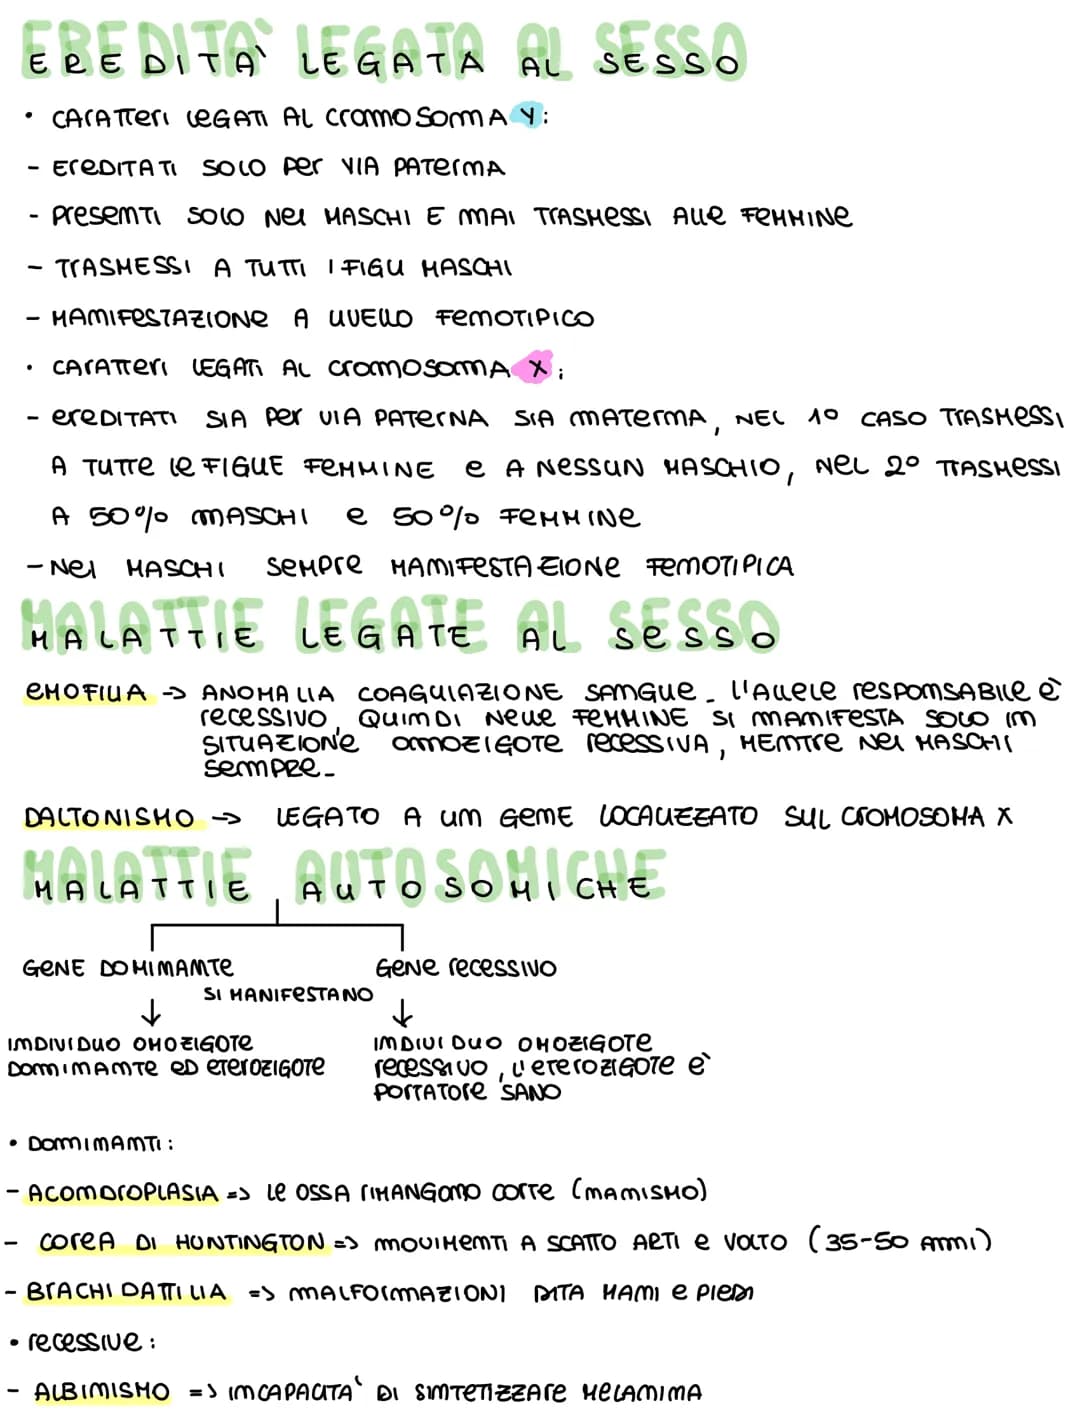 EREDITÀ LEGATA AL SESSO
• CARATTERI LEGATI AL CROMOSOMA Y:
- EREDITATI SOLO PER VIA PATERNA
- PRESENTI SOLO NEI MASCHI E MAI TRASMESSI ALLE FEMMINE
- TRASMESSI A TUTTI I FIGLI MASCHI
- MANIFESTAZIONE A LIVELLO FENOTIPICO
• CARATTERI LEGATI AL CROMOSOMA X:
- EREDITATI SIA PER VIA PATERNA SIA MATERNA, NEL 1° CASO TRASMESSI
A TUTTE LE FIGLIE FEMMINE E A NESSUN MASCHIO, NEL 2° TRASMESSI
A 50% MASCHI E 50% FEMMINE
- NEI MASCHI SEMPRE MANIFESTAZIONE FENOTIPICA
MALATTIE LEGATE AL SESSO
EMOFILIA -> ANOMALIA COAGULAZIONE SANGUE. L'ALLELE RESPONSABILE È
RECESSIVO, QUINDI NELLE FEMMINE SI MANIFESTA SOLO IN
SITUAZIONE OMOZIGOTE RECESSIVA, MENTRE NEI MASCHI
SEMPRE.
DALTONISMO -> LEGATO A UN GENE LOCALIZZATO SUL CROMOSOMA X
MALATTIE AUTOSOMICHE
GENE DOMINANTE GENE RECESSIVO
SI MANIFESTANO
↓ ↓
INDIVIDUO OMOZIGOTE INDIVIDUO OMOZIGOTE
DOMINANTE ED ETEROZIGOTE RECESSIVO, L'ETEROZIGOTE È
PORTATORE SANO
• DOMINANTI:
- ACONDROPLASIA => LE OSSA RIMANGONO CORTE (NANISMO)
- COREA DI HUNTINGTON => MOVIMENTI A SCATTO ARTI E VOLTO (35-50 ANNI)
- BRACHIDATTILIA => MALFORMAZIONI DITA MANI E PIEDI
• RECESSIVE:
- ALBINISMO => INCAPACITÀ DI SINTETIZZARE MELANINA